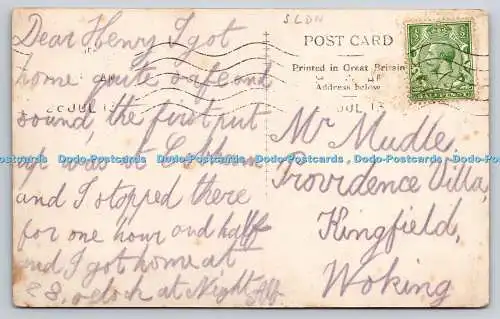 Dear Henry I got
home quite safe and
sound, the first put
up was at
and I stopped there
for one hour and half
and I got home at
8, oclock at Night
SLDN
POST CARD
Printed in Great Britain
Address below
JUL 13
JUL 13
Mr Mudle,
Providence Villa,
Kingfield,
Woking
Dodo-Postcards Dodo-Postcards Dodo-Postcards Dodo-Postcards Dodo-Postcards Dodo-Postcards